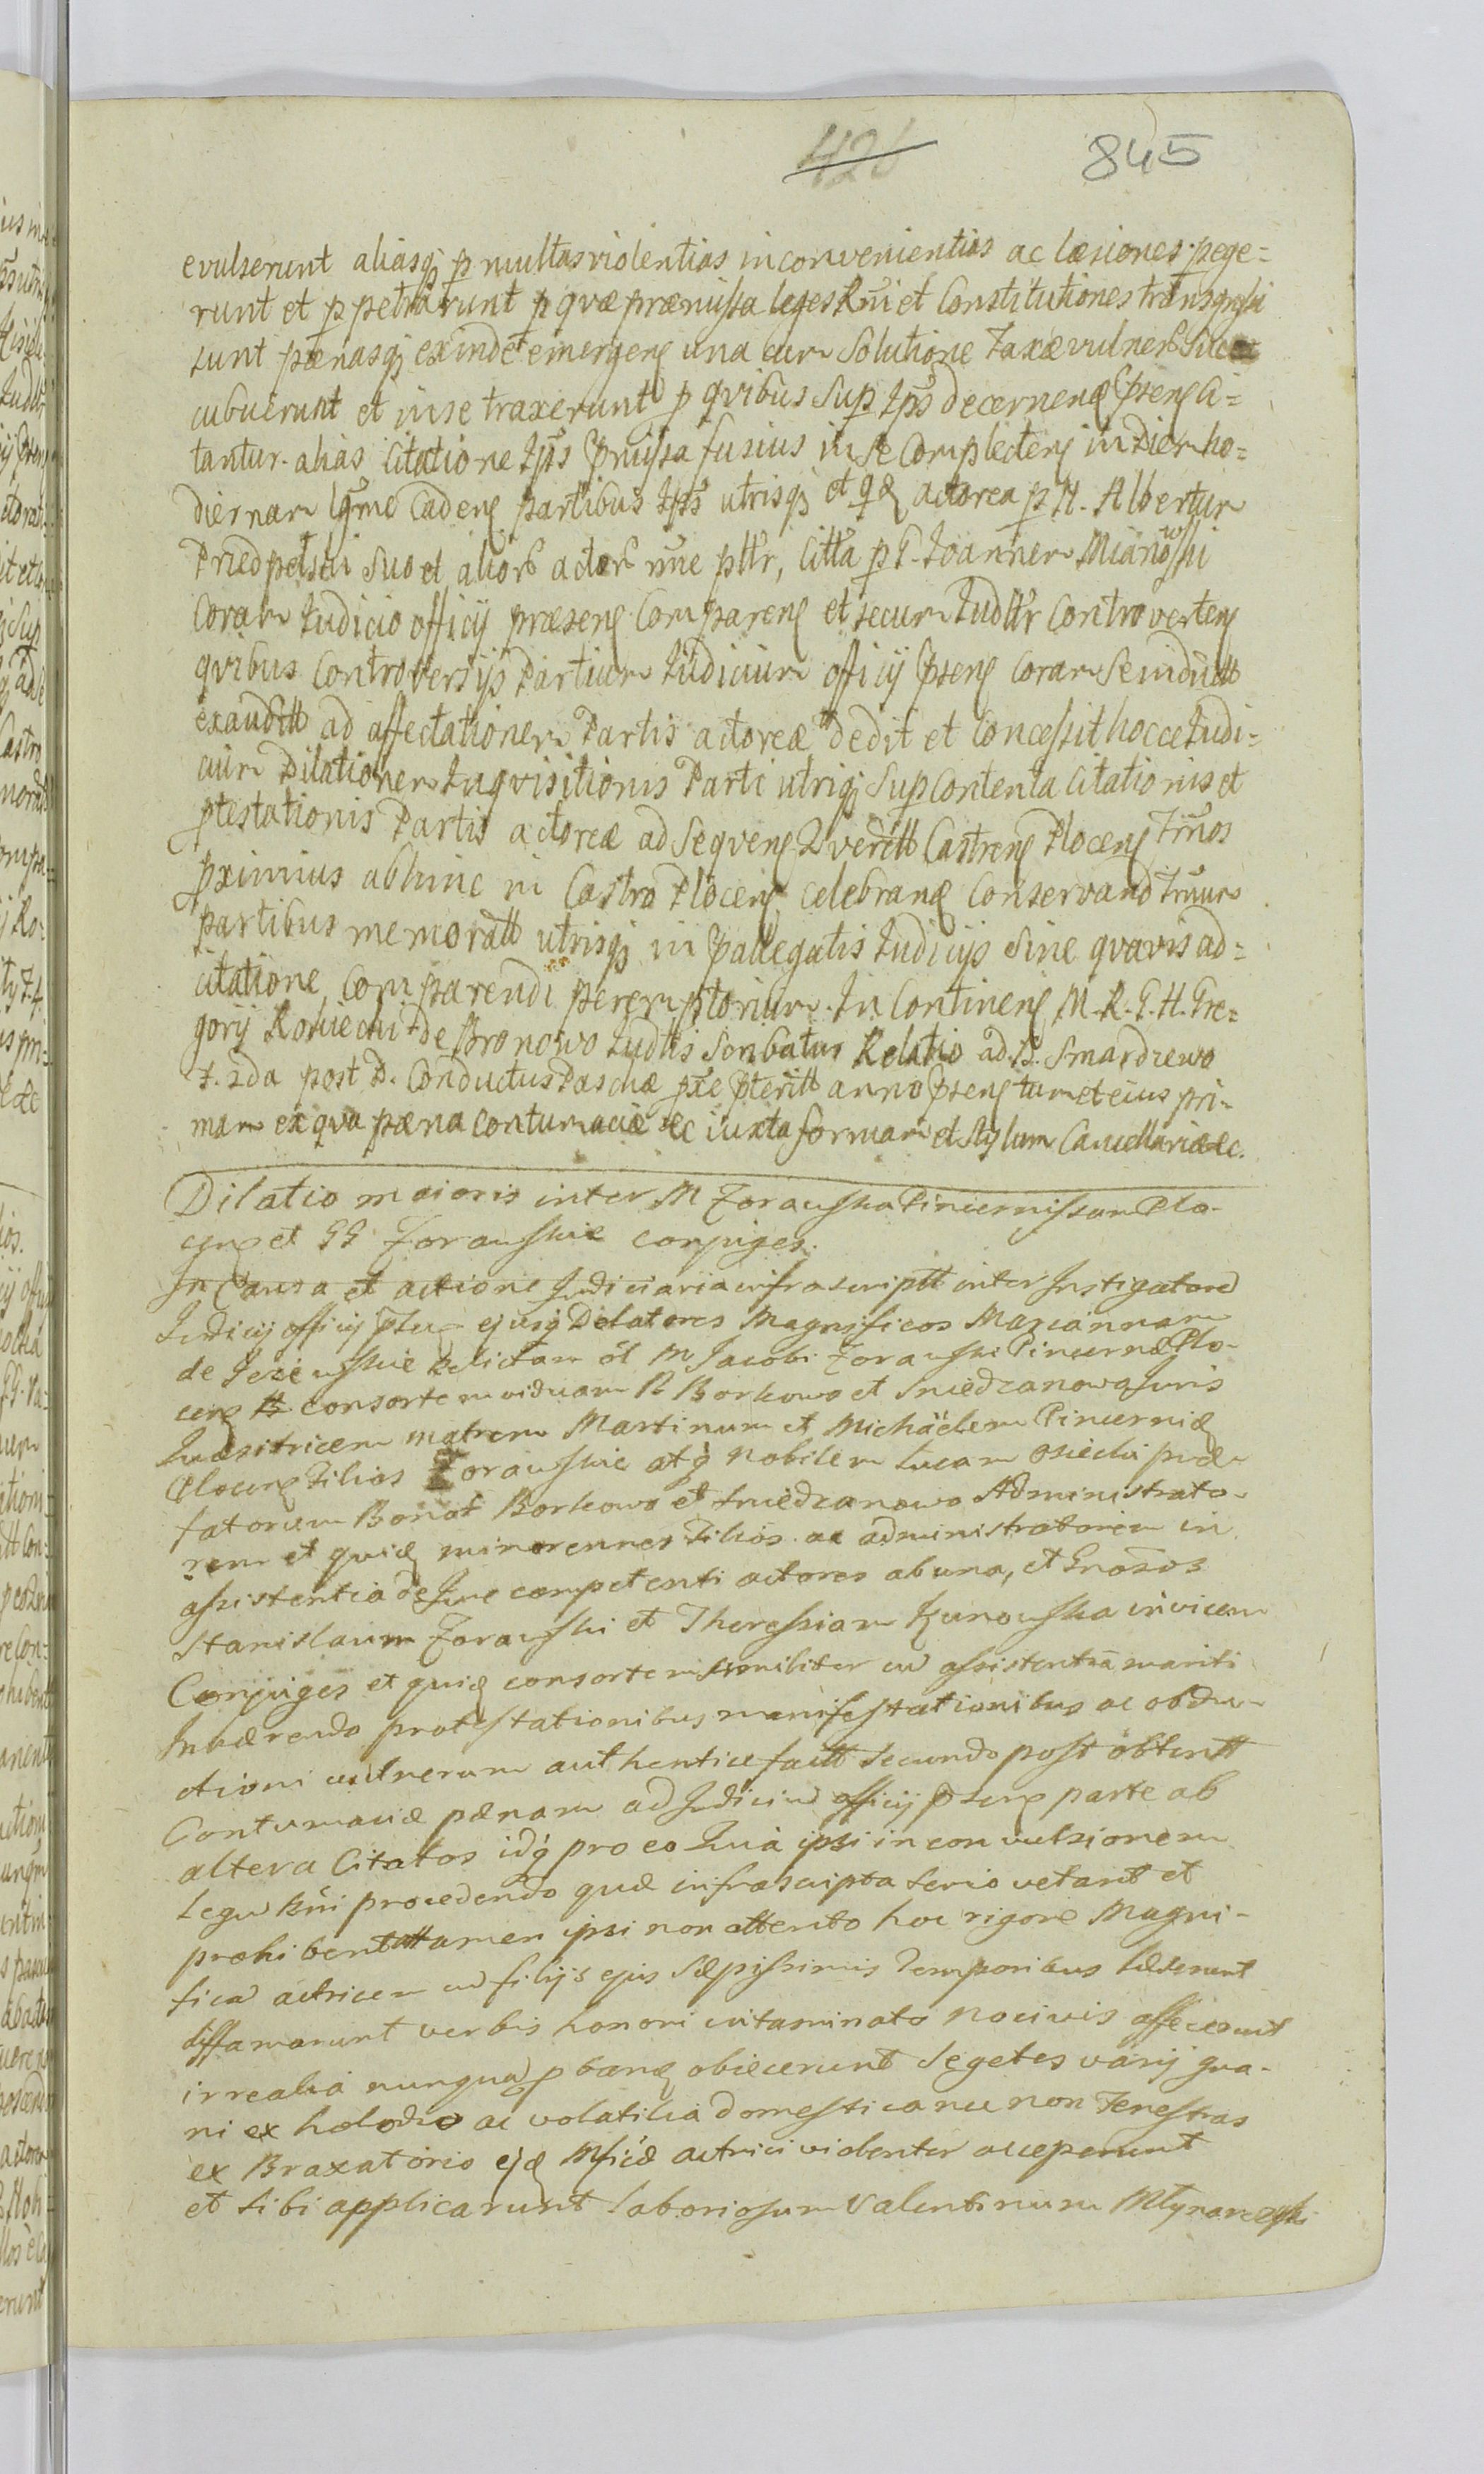 426 845
evulserunt aliasq; p multas violentias inconvenientias ac læsiones pege=
runt et p petrarunt p quæ præmissa leges Rni et Constitutiones transgressi
sunt pænasq; exinde emergen una cum Solutione Taxæ vulner Suc
cubuerunt et in se traxerunt p qvibus Sup Ips decernend Psens Ci=
tantur. alias Citatione Ips Pmissa fusius in se Complecten in diem ho=
diernam lgme Caden partibus Ips utrisq; et qd actorea p N. Albertum
Priedpelski Suo et alior actor nne pltr, Citta p G. Ioannem Mianowski
Coram Iudicio officij præsen Comparen et secum Iudltr Controverten
qvibus Controversijs Partium Iudicium officij Psens Coram Se inductt
exauditt ad affectationem Partis actoreæ dedit et Concessit hocce Iudi=
cium Dilationem Inqvisitionis Parti utriq; Sup Contenta Citationis et
ptestationis Partis actoreæ ad Seqven Qverell Castren Plocen Trnos
pximius abhinc in Castro Plocen celebrand Conservand Trnum
partibus memoratt utrisq; in Pallegatis Iudicijs Sine qvavis ad=
citatione Comparendi peremptorium. In Continen M. R. G. H. Gre=
gorij Rokicchi de Bronowo Iudlis Scribatus Relatio ad B. Smardzewo
f. 2da post D. Conductus Paschæ pxe Pteritt anno Psens tum et eius pri=
mam ex qva pæna contumaciæ &c iuxta formam et Stylum Cancellariæ &c.
Dilatio maioris inter M Zorawska Pincernissam Plo-
cen et GG Zorawskie conjuges.
In Causa et actione Judiciaria infrascriptt inter Instigatored
Judicij officij Psen ejusq Delatores Magnificos Mariannam
de Jezewskie Relictam ol M Jacobi Zorawski Pincernæ Plo-
cen consortem viduam B Borkowo et Sniedzanowo Juris
Quæsitricem matrem Martinum et Michäelem Pincernid
Plocen Filios Zorawskie atq Nobilem Lucam Osiecki præ-
fatorum Bonor Borkowo et Sniedzanowo Administrato-
rem et quid minorennes Filios ac administratorem in
assistentia de Jure competenti actores ab una, et Grosos
Stanislaum Zorawski et Theressiam Kunowska invicem
Conjuges et quid consortem similiter in assistentia mariti
Inhærendo protestationibus manifestationibus ac obdu-
ctioni vulnerum authentice factt Secundo post obtentt
Contumaciæ pænam ad Judiciu officij Psens parte ab
altera Citatos idq pro eo Quia ipsi in convulsionem
Legu Rni procedendo quæ infrascripta Serio vetant et
prohibent attamen ipsi non attento hoc rigore Magni-
ficа actricem cu filijs ejus Sæpissimis Temporibus læserunt
diffamarunt verbis honori intaminato nocivis affecerunt
irrealia nunqua pband obiecerunt Segetes varij gra-
ni ex ac volatilia domestica nec non Fenestras
ex Braxatorio ejd Mficæ actrici violenter acceperunt
et Sibi applicarunt Laboriosum Valentinum Młynarczyk